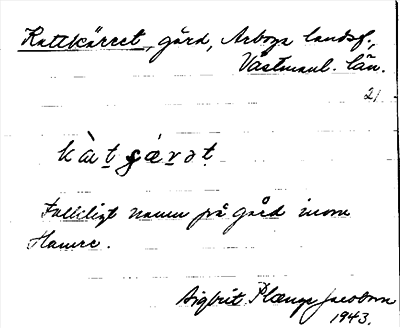 Kattkärret, gård, Arboga landsf.,
Västmanl. län.
21
kàtçærət
Folkligt namn på gård inom
Hamre.
Sigbrit Plænge Jacobson
1943.